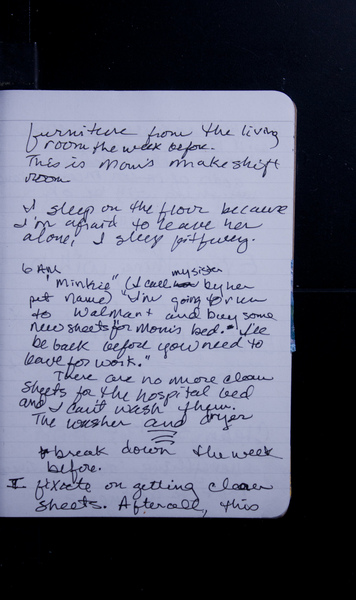 furniture from the living
room the week before.
This is Mom's makeshift
room
I sleep on the floor because
I'm afraid to leave her
alone, I sleep pitfully.
6 AM my sister
"Minkie" (I call her by her
pet name) "I'm going to run
to Walmart and buy some
new sheets for Mom's bed. I'll
be back before you need to
leave for work."
There are no more clean
sheets for the hospital bed
and I can't wash them.
The washer and dryer
break down the week
before.
I fixate on getting clean
sheets. Afterall, this